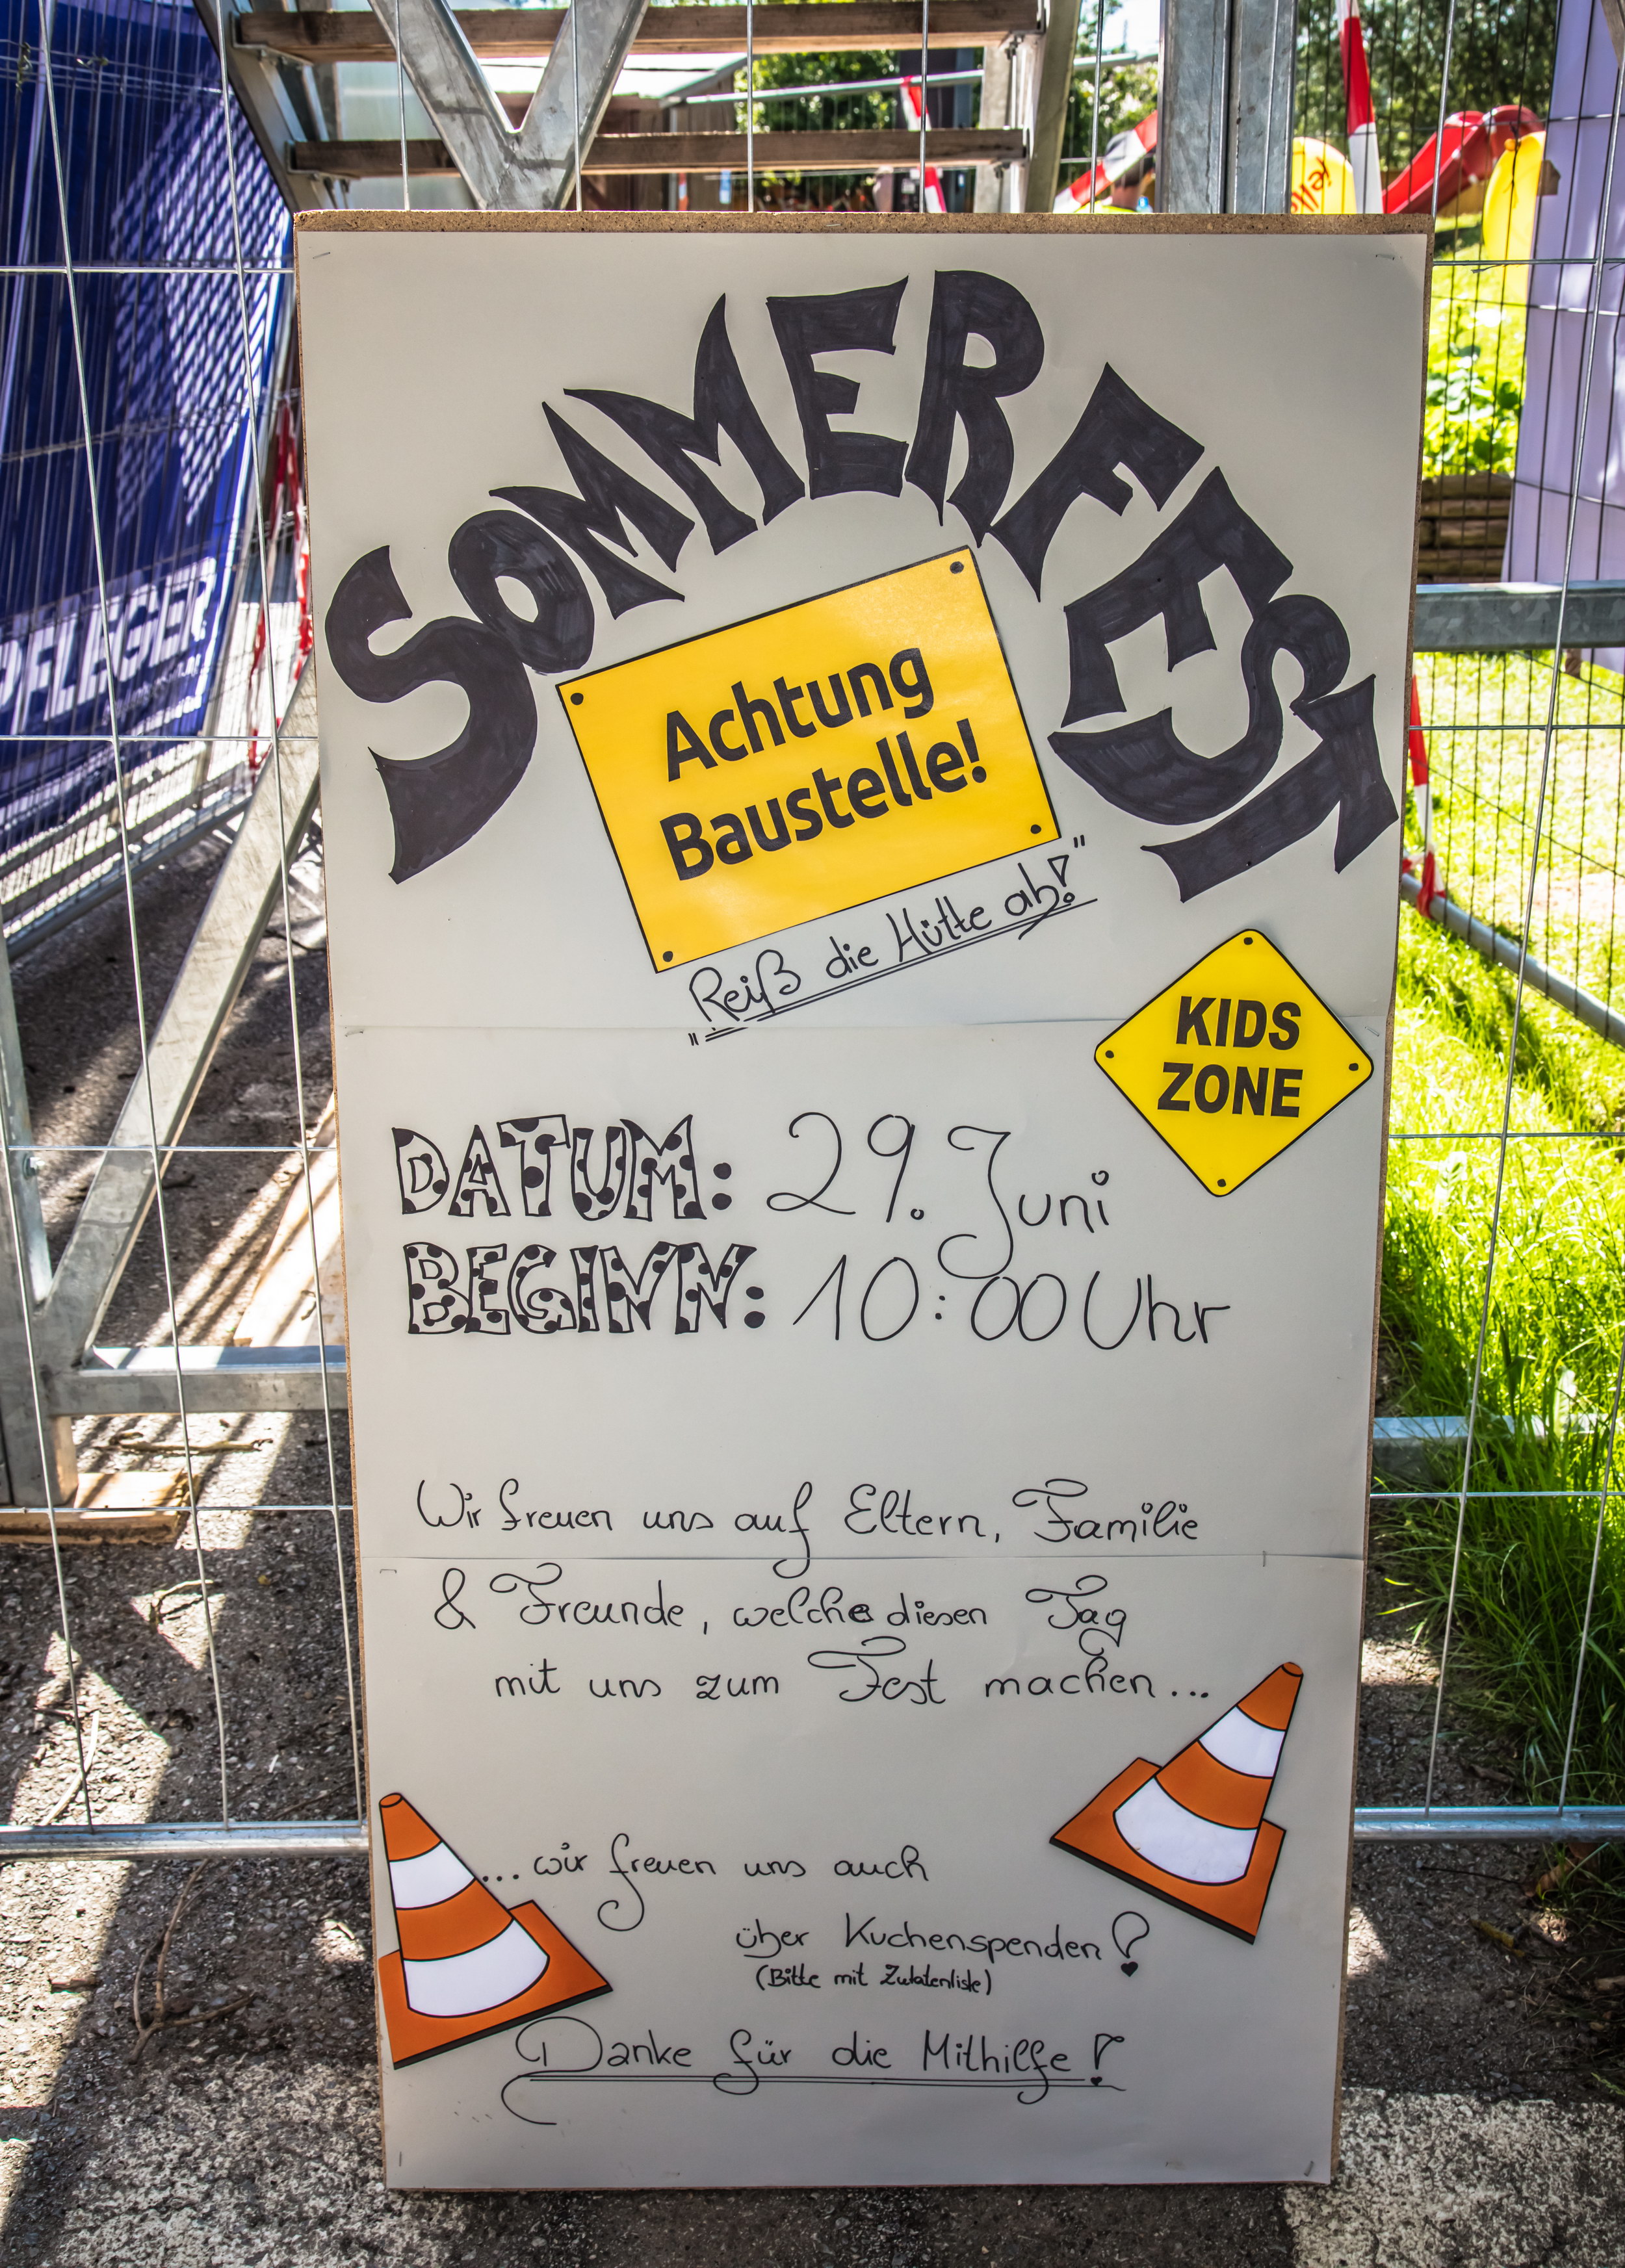 SOMMERFEST
Achtung
Baustelle!
„Reiß die Hütte ab!"
KIDS
ZONE
DATUM: 29. Juni
BEGINN: 10:00 Uhr
Wir freuen uns auf Eltern, Familie
& Freunde, welche diesen Tag
mit uns zum Fest machen...
...wir freuen uns auch
über Kuchenspenden!
(Bitte mit Zutatenliste)
Danke für die Mithilfe!